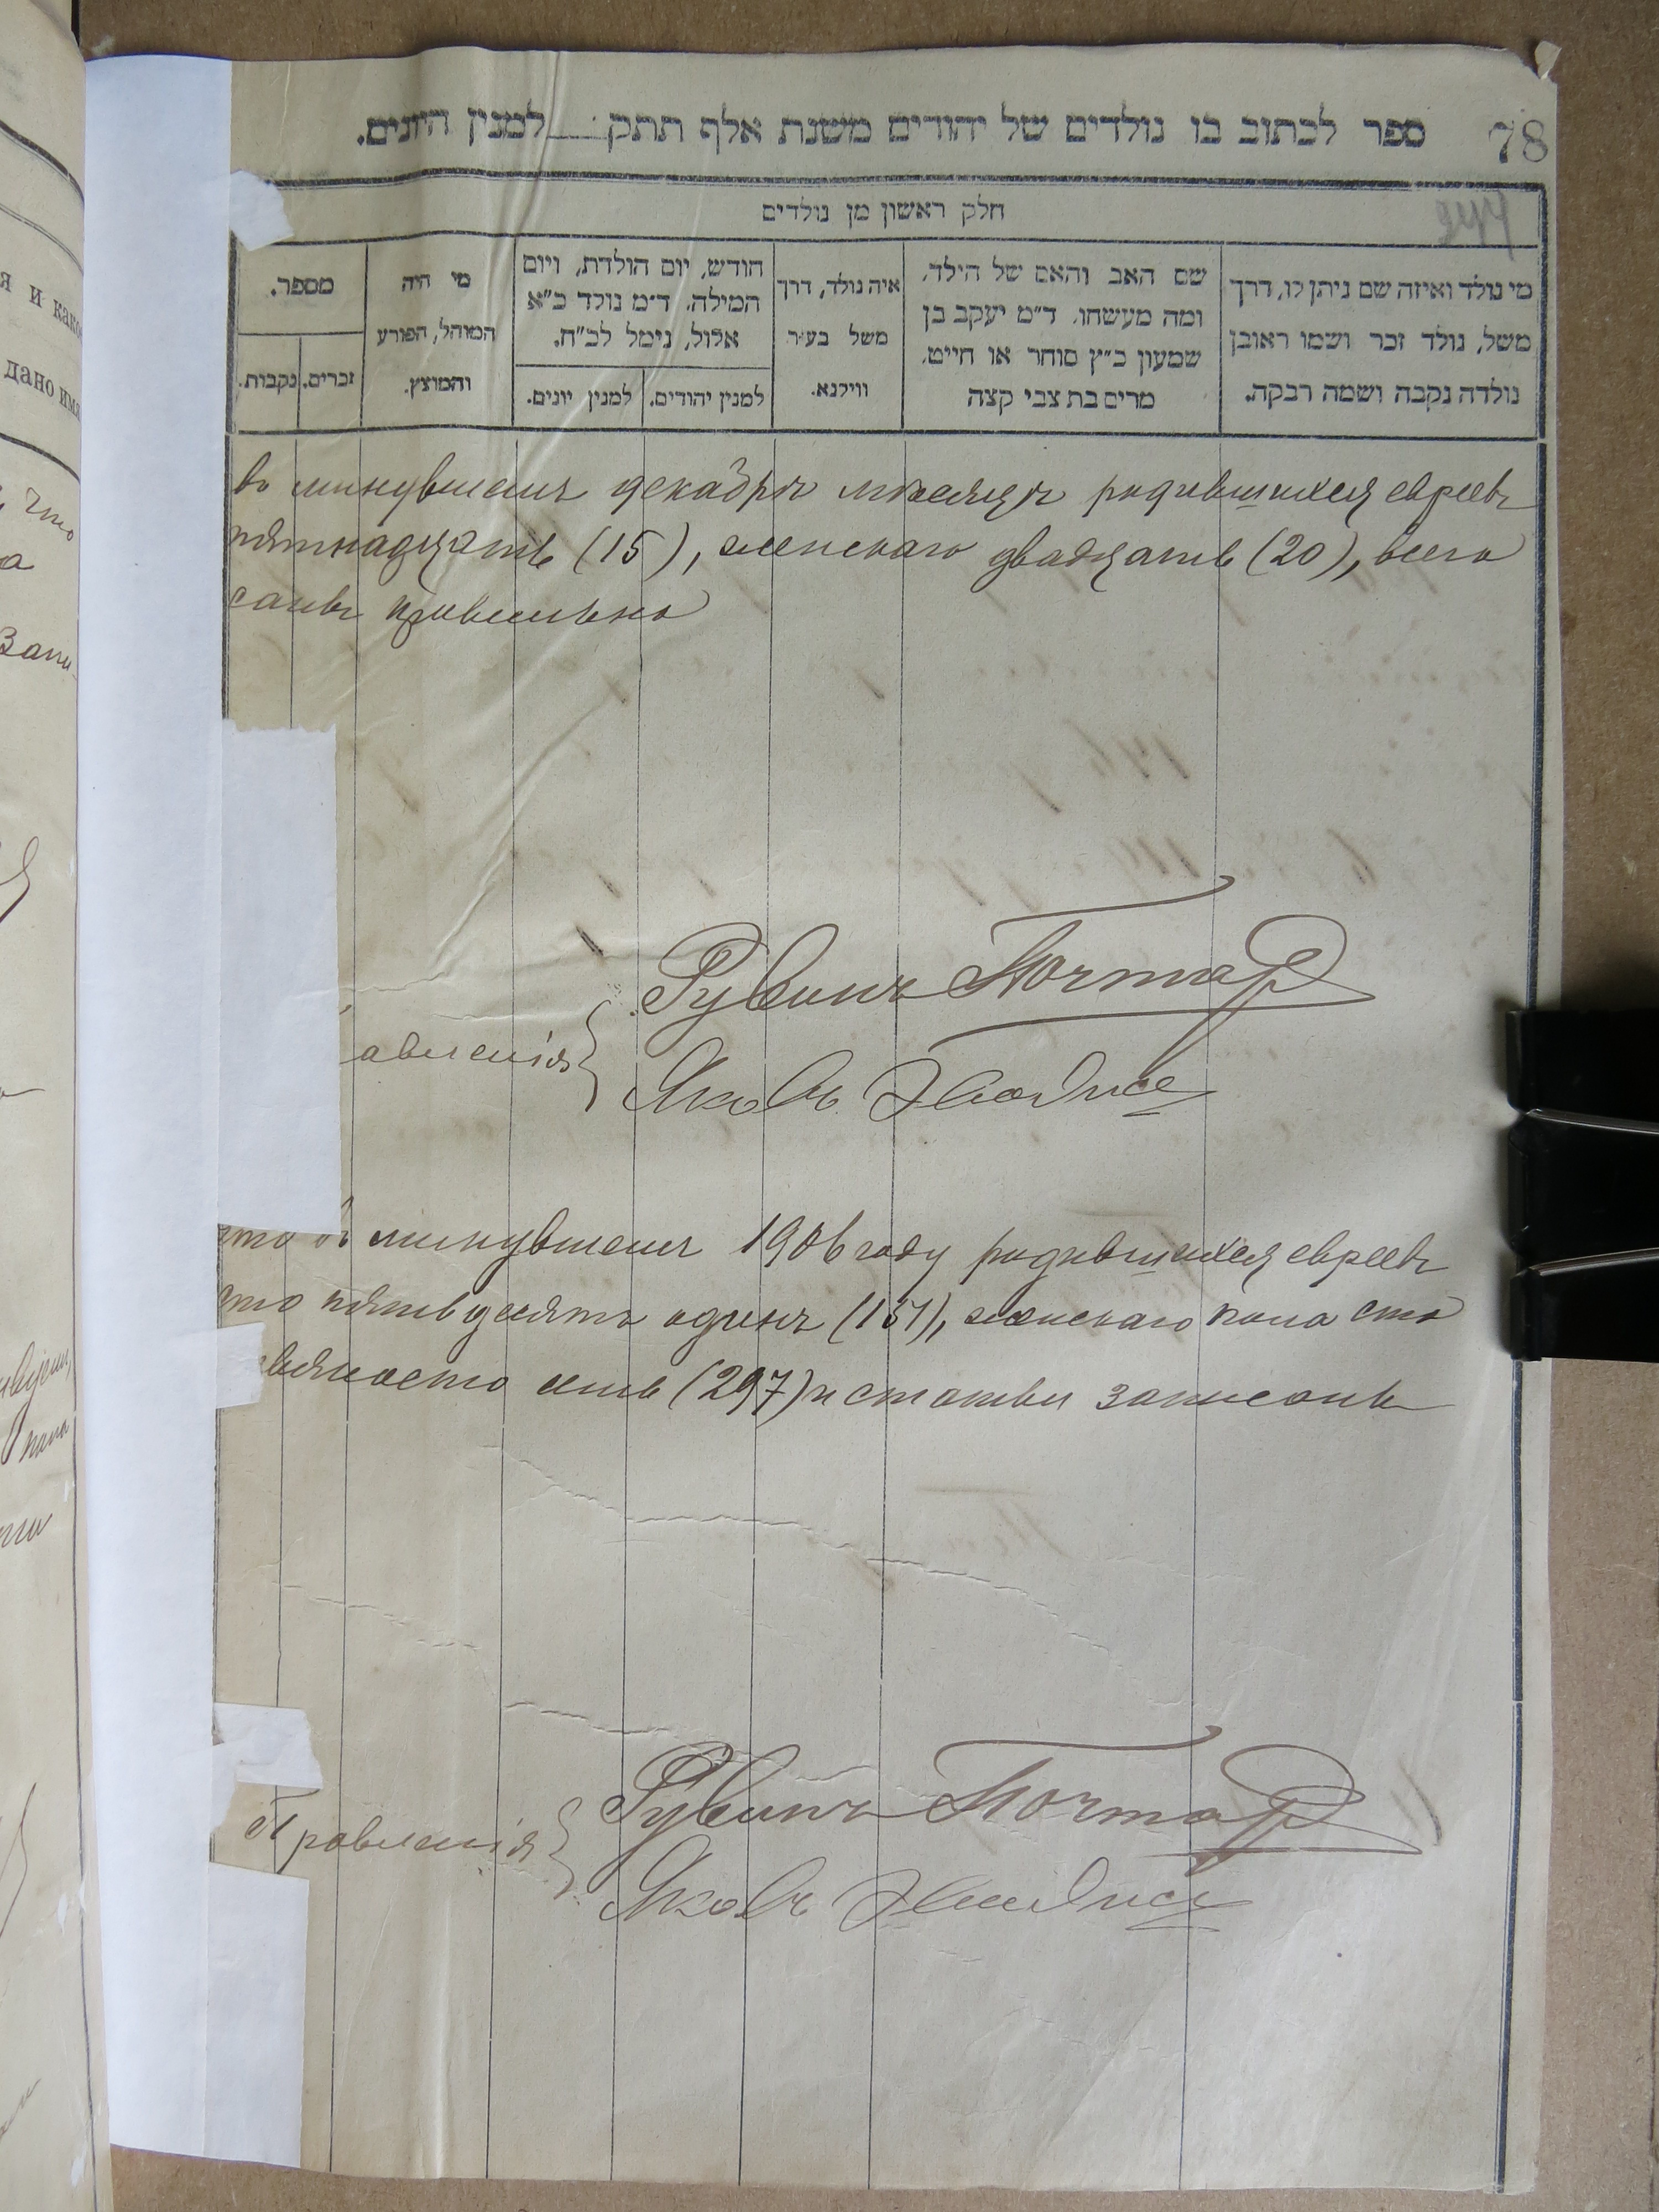 78
ספר לכתוב בו נולדים של יהודים משנת אלף תתק למנין היונים.
חלק ראשון מן נולדים
מי נולד ואיזה שם ניתן לו, דרך
משל, נולד זכר ושמו ראובן
נולדה נקבה ושמה רבקה.
שם האב והאם של הילד,
ומה מעשהו, ד"מ יעקב בן
שמעון כ"ץ סוחר או חייט,
מרים בת צבי קצה
איה נולד, דרך
משל בעיר
ווילנא.
חודש, יום הולדת, ויום
המילה. ד"מ נולד כ"א
אלול, נימל לכ"ח.
למנין יהודים.
למנין יונים.
מי היה
המוהל, הפורע
והמוצץ.
מספר.
זכרים.
נקבות.
я и како
дано имя
что
а
Запи
въ минувшемъ декабрѣ мѣсяцѣ родившихся евреевъ
пятнадцать (15), женскаго двадцать (20), всего
санъ правильно
авленія
Рувинъ Почтар
Яковъ
что въ минувшемъ 1906 году родившихся евреевъ
сто пятьдесятъ одинъ (151), женскаго пола сто
девяносто семь (297) и статьи записаны
Правленія
Рувинъ Почтар
Яковъ
пола